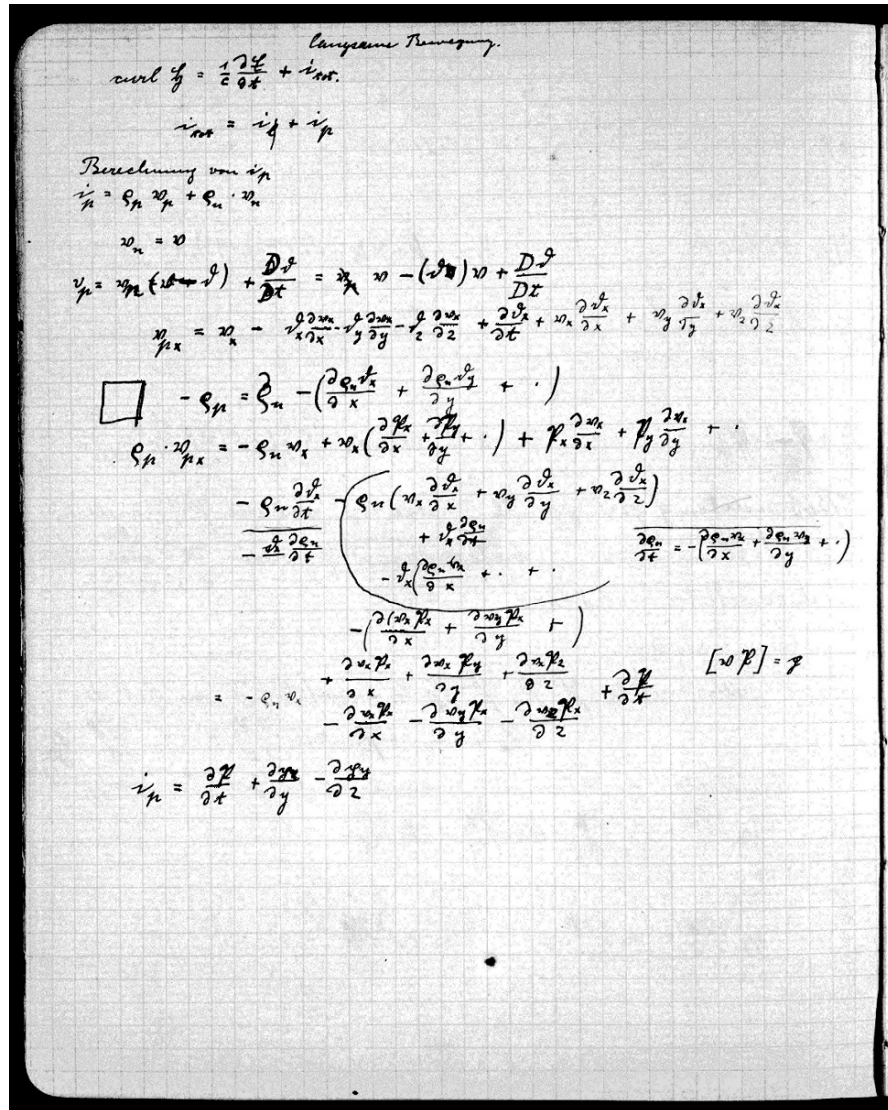 langsame Bewegung.
curl 𝔥 = 1/c ∂𝔈/∂t + i_tot.
i_tot = i_l + i_p
Berechnung von i_p
i_p = ϱ_p v_p + ϱ_n · v_n
v_n = v
= v − (ϑ∇)v + Dϑ/Dt
v_px = v_x − ϑ_x ∂v_x/∂x − ϑ_y ∂v_x/∂y − ϑ_z ∂v_x/∂z + ∂ϑ_x/∂t + v_x ∂ϑ_x/∂x + v_y ∂ϑ_x/∂y + v_z ∂ϑ_x/∂z
− ϱ_p = ϱ_n − (∂ϱ_nϑ_x/∂x + ∂ϱ_nϑ_y/∂y + ·)
ϱ_p · v_px = − ϱ_n v_x + v_x (∂𝔭_x/∂x + ∂𝔭_y/∂y + ·) + 𝔭_x ∂v_x/∂x + 𝔭_y ∂v_x/∂y + ·
− ϱ_n ∂ϑ_x/∂t − ϱ_n (v_x ∂ϑ_x/∂x + v_y ∂ϑ_x/∂y + v_z ∂ϑ_x/∂z)
− ϑ_x ∂ϱ_n/∂t + ϑ_x ∂ϱ_n/∂t ∂ϱ_n/∂t = −(∂ϱ_n v_x/∂x + ∂ϱ_n v_y/∂y + ·)
− ϑ_x (∂ϱ_n v_x/∂x + · + ·
−(∂(v_x 𝔭_x/∂x + ∂v_y 𝔭_x/∂y + )
+ ∂v_x 𝔭_x/∂x + ∂v_x 𝔭_y/∂y + ∂v_x 𝔭_z/∂z
= − ϱ_n v_x + ∂𝔭/∂t [v 𝔭] =
− ∂v_x 𝔭_x/∂x − ∂v_y 𝔭_x/∂y − ∂v_z 𝔭_x/∂z
i_p = ∂𝔭/∂t + ∂ /∂y − ∂ /∂z